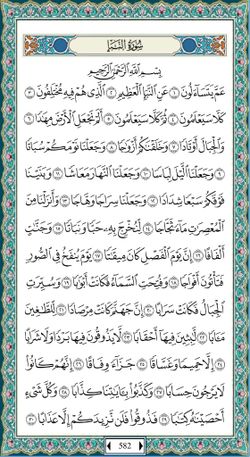 سُورَةُ النَّبَإِ
بِسْمِ اللَّهِ الرَّحْمَٰنِ الرَّحِيمِ
عَمَّ يَتَسَاءَلُونَ ١ عَنِ النَّبَإِ الْعَظِيمِ ٢ الَّذِي هُمْ فِيهِ مُخْتَلِفُونَ ٣
كَلَّا سَيَعْلَمُونَ ٤ ثُمَّ كَلَّا سَيَعْلَمُونَ ٥ أَلَمْ نَجْعَلِ الْأَرْضَ مِهَادًا ٦
وَالْجِبَالَ أَوْتَادًا ٧ وَخَلَقْنَاكُمْ أَزْوَاجًا ٨ وَجَعَلْنَا نَوْمَكُمْ سُبَاتًا
٩ وَجَعَلْنَا اللَّيْلَ لِبَاسًا ١٠ وَجَعَلْنَا النَّهَارَ مَعَاشًا ١١ وَبَنَيْنَا
فَوْقَكُمْ سَبْعًا شِدَادًا ١٢ وَجَعَلْنَا سِرَاجًا وَهَّاجًا ١٣ وَأَنْزَلْنَا مِنَ
الْمُعْصِرَاتِ مَاءً ثَجَّاجًا ١٤ لِنُخْرِجَ بِهِ حَبًّا وَنَبَاتًا ١٥ وَجَنَّاتٍ
أَلْفَافًا ١٦ إِنَّ يَوْمَ الْفَصْلِ كَانَ مِيقَاتًا ١٧ يَوْمَ يُنْفَخُ فِي الصُّورِ
فَتَأْتُونَ أَفْوَاجًا ١٨ وَفُتِحَتِ السَّمَاءُ فَكَانَتْ أَبْوَابًا ١٩ وَسُيِّرَتِ
الْجِبَالُ فَكَانَتْ سَرَابًا ٢٠ إِنَّ جَهَنَّمَ كَانَتْ مِرْصَادًا ٢١ لِلطَّاغِينَ
مَآبًا ٢٢ لَابِثِينَ فِيهَا أَحْقَابًا ٢٣ لَا يَذُوقُونَ فِيهَا بَرْدًا وَلَا شَرَابًا
٢٤ إِلَّا حَمِيمًا وَغَسَّاقًا ٢٥ جَزَاءً وِفَاقًا ٢٦ إِنَّهُمْ كَانُوا
لَا يَرْجُونَ حِسَابًا ٢٧ وَكَذَّبُوا بِآيَاتِنَا كِذَّابًا ٢٨ وَكُلَّ شَيْءٍ
أَحْصَيْنَاهُ كِتَابًا ٢٩ فَذُوقُوا فَلَنْ نَزِيدَكُمْ إِلَّا عَذَابًا ٣٠
582